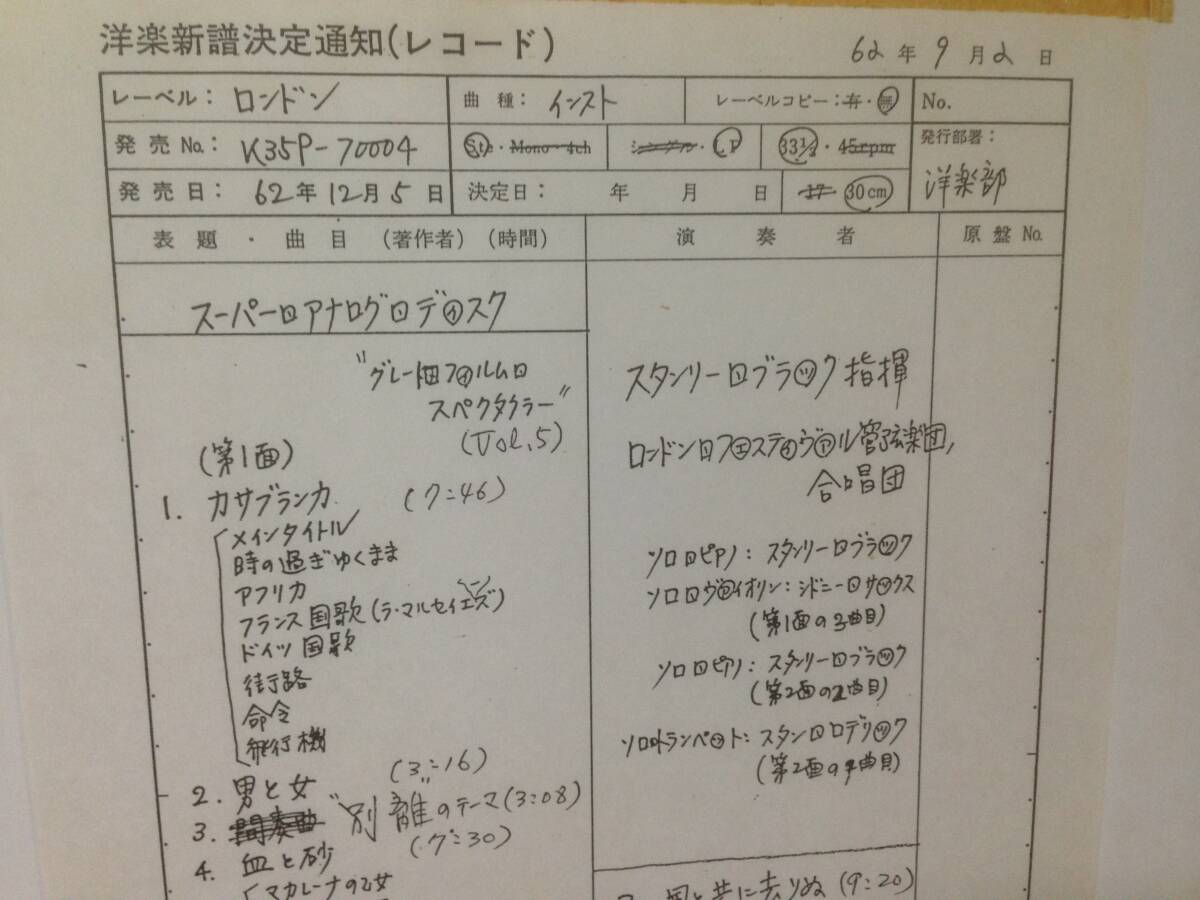 洋楽新譜決定通知(レコード)
62年 9月 2日
レーベル: ロンドン
曲種: インスト
レーベルコピー: 有・無
No.
発売 No.: K35P-70004
Ste・Mono・4ch
シングル・LP
33⅓・45rpm
発行部署:
洋楽部
発売日: 62年12月5日
決定日: 年 月 日
17 30cm
表題・曲目 (著作者) (時間)
演奏者
原盤 No.
スーパー□アナログ□ディスク
"グレート□フィルム□
スペクタクラー"
(Vol.5)
(第1面)
1. カサブランカ (7:46)
メインタイトル
時の過ぎゆくまま
アフリカ
フランス国歌 (ラ・マルセイエーズ)
ドイツ国歌
街路
命令
飛行機
2. 男と女 (3:16)
3. 間奏曲 "別離のテーマ" (3:08)
4. 血と砂 (7:30)
マカレーナの乙女
スタンリー□ブラック指揮
ロンドン□フェスティヴァル管弦楽団,
合唱団
ソロ□ピアノ: スタンリー□ブラック
ソロ□ヴァイオリン: シドニー□サックス
(第1面の3曲目)
ソロ□ピアノ: スタンリー□ブラック
(第2面の2曲目)
ソロ□トランペット: スタン□ロデリック
(第2面の4曲目)
風と共に去りぬ (9:20)